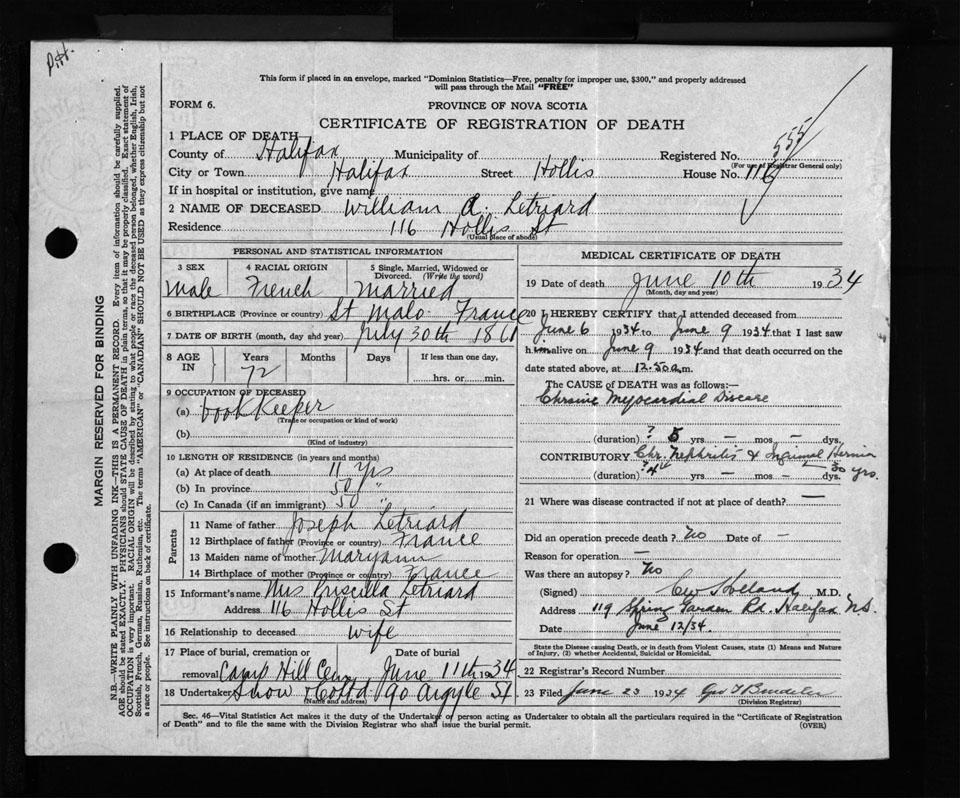 P.H.
This form if placed in an envelope, marked "Dominion Statistics—Free, penalty for improper use, $300," and properly addressed
will pass through the Mail "FREE"
FORM 6.
PROVINCE OF NOVA SCOTIA
CERTIFICATE OF REGISTRATION OF DEATH
1 PLACE OF DEATH
County of Halifax Municipality of Registered No. 555
(For use of Registrar General only)
City or Town Halifax Street Hollis House No. 116
If in hospital or institution, give name
2 NAME OF DECEASED William A. Letriard
Residence 116 Hollis St
(Usual place of abode)
PERSONAL AND STATISTICAL INFORMATION
3 SEX
male
4 RACIAL ORIGIN
French
5 Single, Married, Widowed or
Divorced. (Write the word)
Married
6 BIRTHPLACE (Province or country) St Malo France
7 DATE OF BIRTH (month, day and year) July 30th 1861
8 AGE
IN
Years
72
Months
Days
If less than one day,
hrs. or min.
9 OCCUPATION OF DECEASED
(a) bookkeeper
(Trade or occupation or kind of work)
(b)
(Kind of industry)
10 LENGTH OF RESIDENCE (in years and months)
(a) At place of death 11 yrs
(b) In province 50 "
(c) In Canada (if an immigrant) 50 "
Parents
11 Name of father Joseph Letriard
12 Birthplace of father (Province or country) France
13 Maiden name of mother Maryann
14 Birthplace of mother (Province or country) France
15 Informant's name Mrs Priscilla Letriard
Address 116 Hollis St
16 Relationship to deceased wife
17 Place of burial, cremation or Date of burial
removal Camp Hill Cem June 11th 1934
18 Undertaker Snow & Co Ltd 90 Argyle St
(Name and address)
MEDICAL CERTIFICATE OF DEATH
19 Date of death June 10th 1934
(Month, day and year)
20 I HEREBY CERTIFY that I attended deceased from
June 6 1934 to June 9 1934 that I last saw
him alive on June 9 1934 and that death occurred on the
date stated above, at 12.50 a.m.
The CAUSE of DEATH was as follows:—
Chronic Myocardial Disease
(duration) ? 5 yrs — mos — dys.
CONTRIBUTORY Chr. Nephritis & Inguinal Hernia
(duration) ? 4 yrs. — mos. — dys. 30 yrs.
21 Where was disease contracted if not at place of death? —
Did an operation precede death? No Date of —
Reason for operation —
Was there an autopsy? No
(Signed) Holland M.D.
Address 119 Spring Garden Rd. Halifax N.S.
Date June 12/34.
State the Disease causing Death, or in death from Violent Causes, state (1) Means and Nature
of Injury, (2) whether Accidental, Suicidal or Homicidal.
22 Registrar's Record Number
23 Filed June 23 1934 Geo
(Division Registrar)
Sec. 46—Vital Statistics Act makes it the duty of the Undertaker or person acting as Undertaker to obtain all the particulars required in the "Certificate of Registration
of Death" and to file the same with the Division Registrar who shall issue the burial permit. (OVER)
MARGIN RESERVED FOR BINDING
N.B.—WRITE PLAINLY WITH UNFADING INK—THIS IS A PERMANENT RECORD. Every item of information should be carefully supplied.
AGE should be stated EXACTLY. PHYSICIANS should STATE CAUSE OF DEATH in plain terms, so that it may be properly classified. Exact statement of
OCCUPATION is very important. RACIAL ORIGIN will be described by stating to what people or race the deceased person belonged, whether English, Irish,
Scottish, French, German, Russian, Ruthenian, etc. The terms "AMERICAN" or "CANADIAN" SHOULD NOT BE USED as they express citizenship but not
a race or people. See instructions on back of certificate.